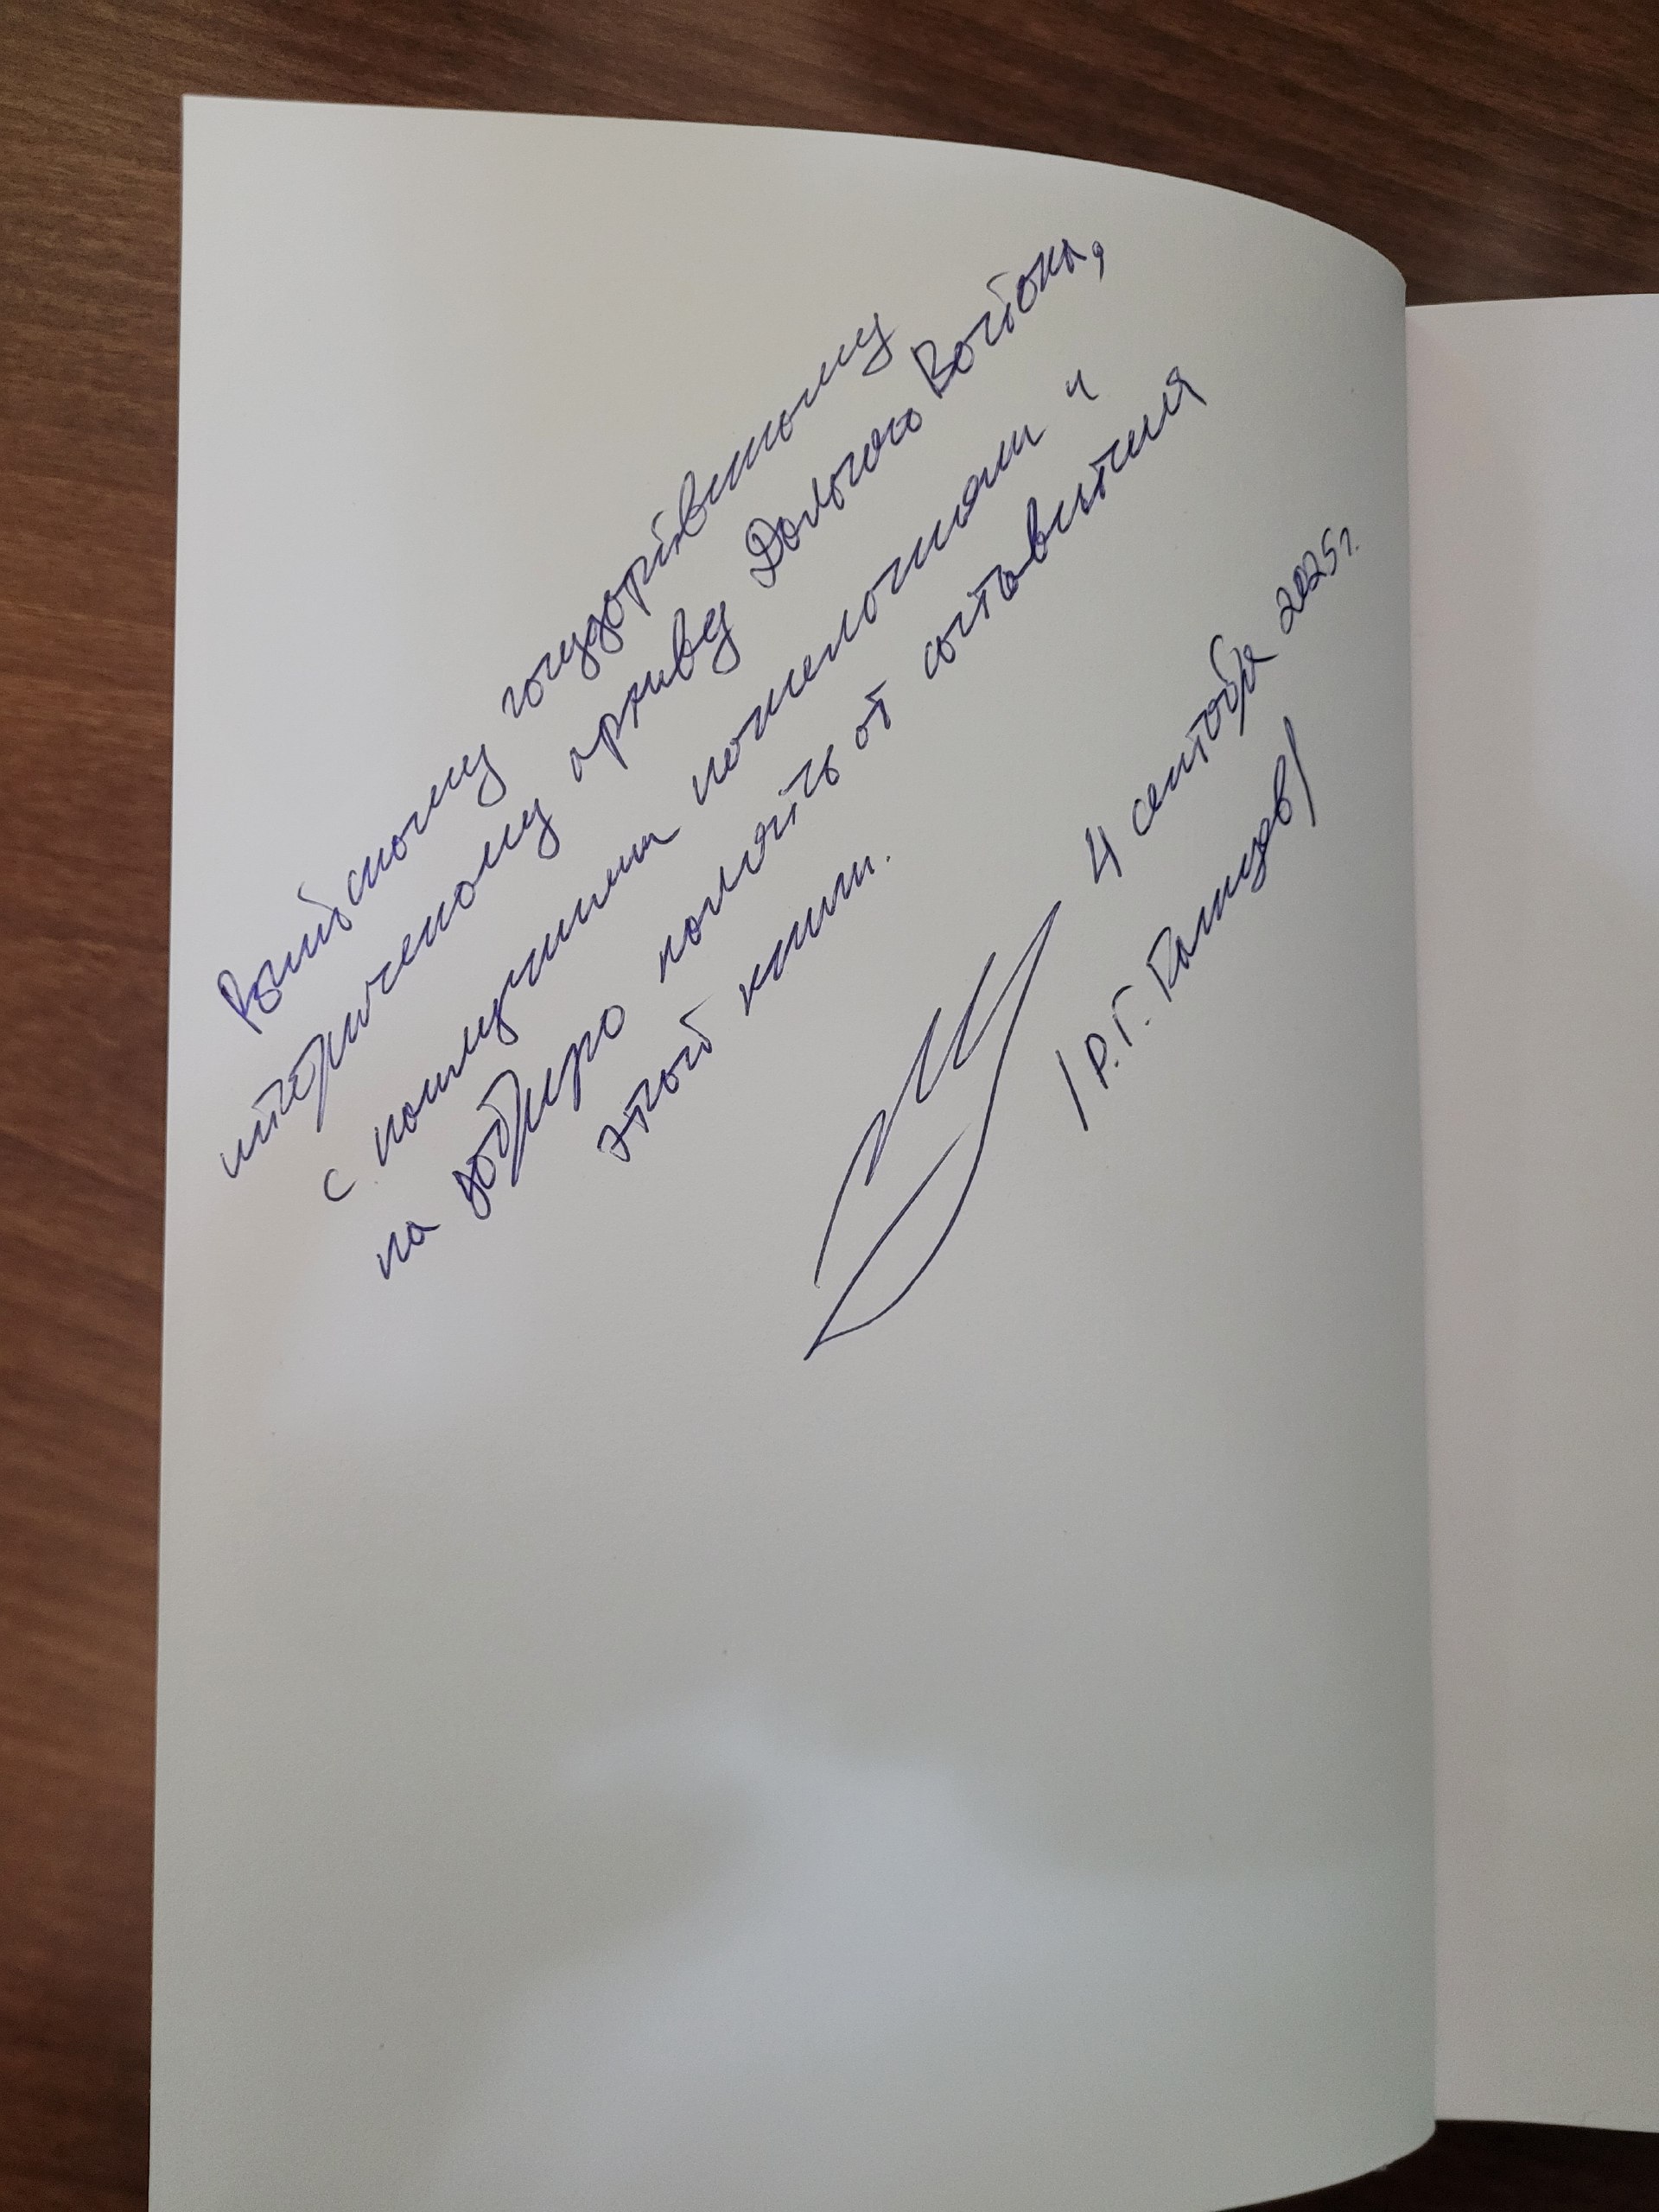 Российскому государственному
историческому архиву Дальнего Востока,
с наилучшими пожеланиями и
на добрую память от составителя
этой книги.
4 сентября 2025 г.
/Р.Г. /